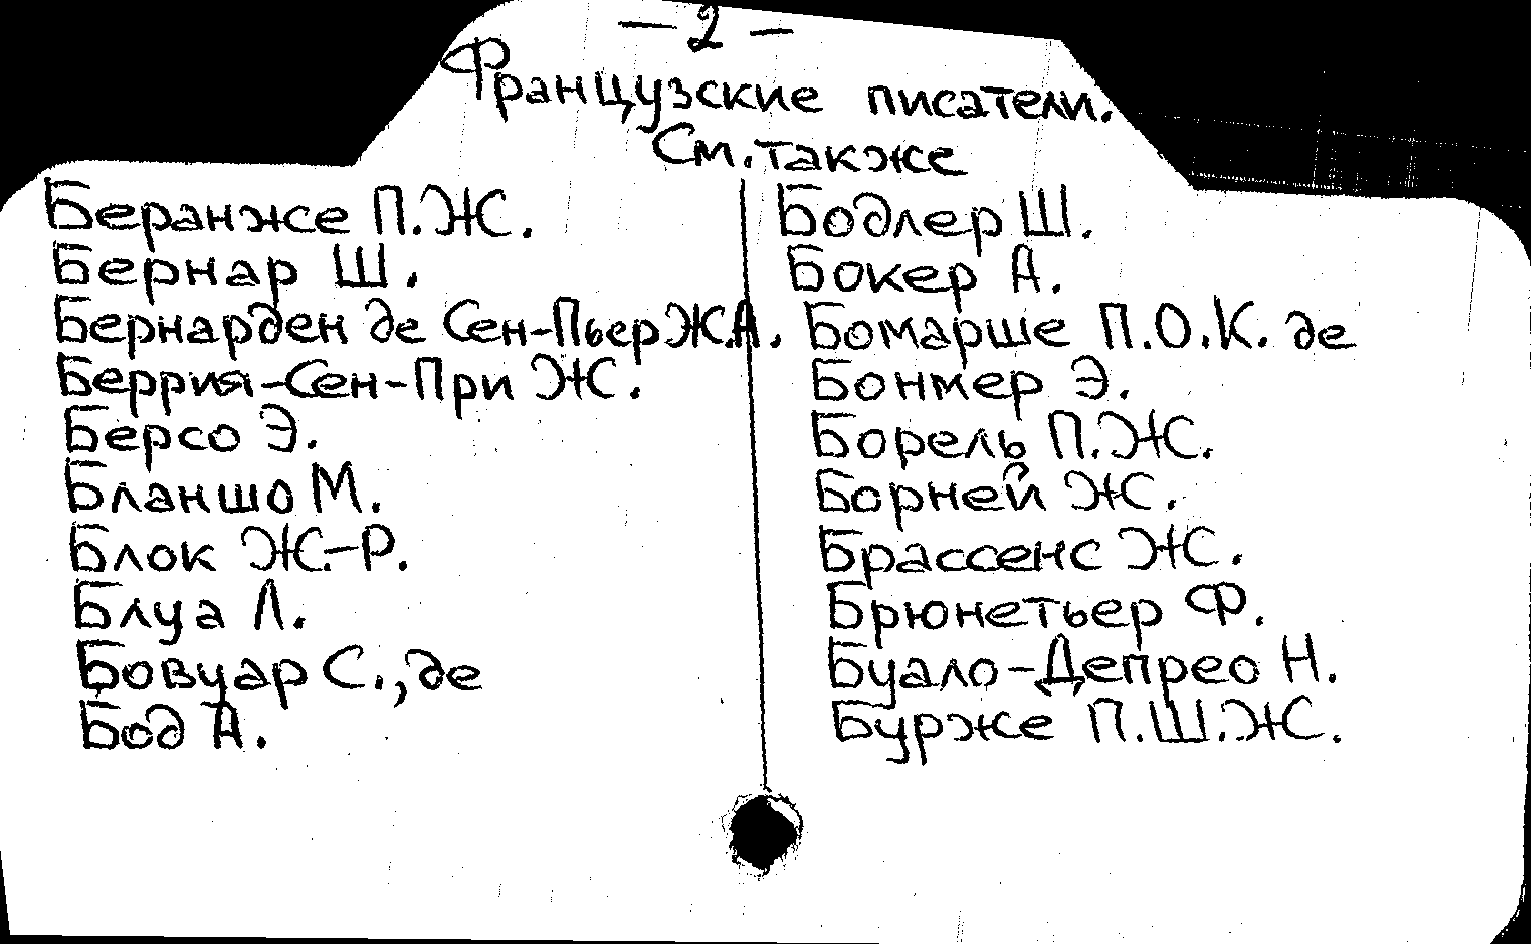 — 2 —
Французские писатели.
См. также
Беранже П.Ж.
Бернар Ш.
Бернарден де Сен-Пьер Ж.А.
Беррия-Сен-При Ж.
Берсо Э.
Бланшо М.
Блок Ж.-Р.
Блуа Л.
Бовуар С., де
Бод А.
Бодлер Ш.
Бокер А.
Бомарше П.О.К. де
Бонмер Э.
Борель П.Ж.
Борней Ж.
Брассенс Ж.
Брюнетьер Ф.
Буало-Депрео Н.
Бурже П.Ш.Ж.